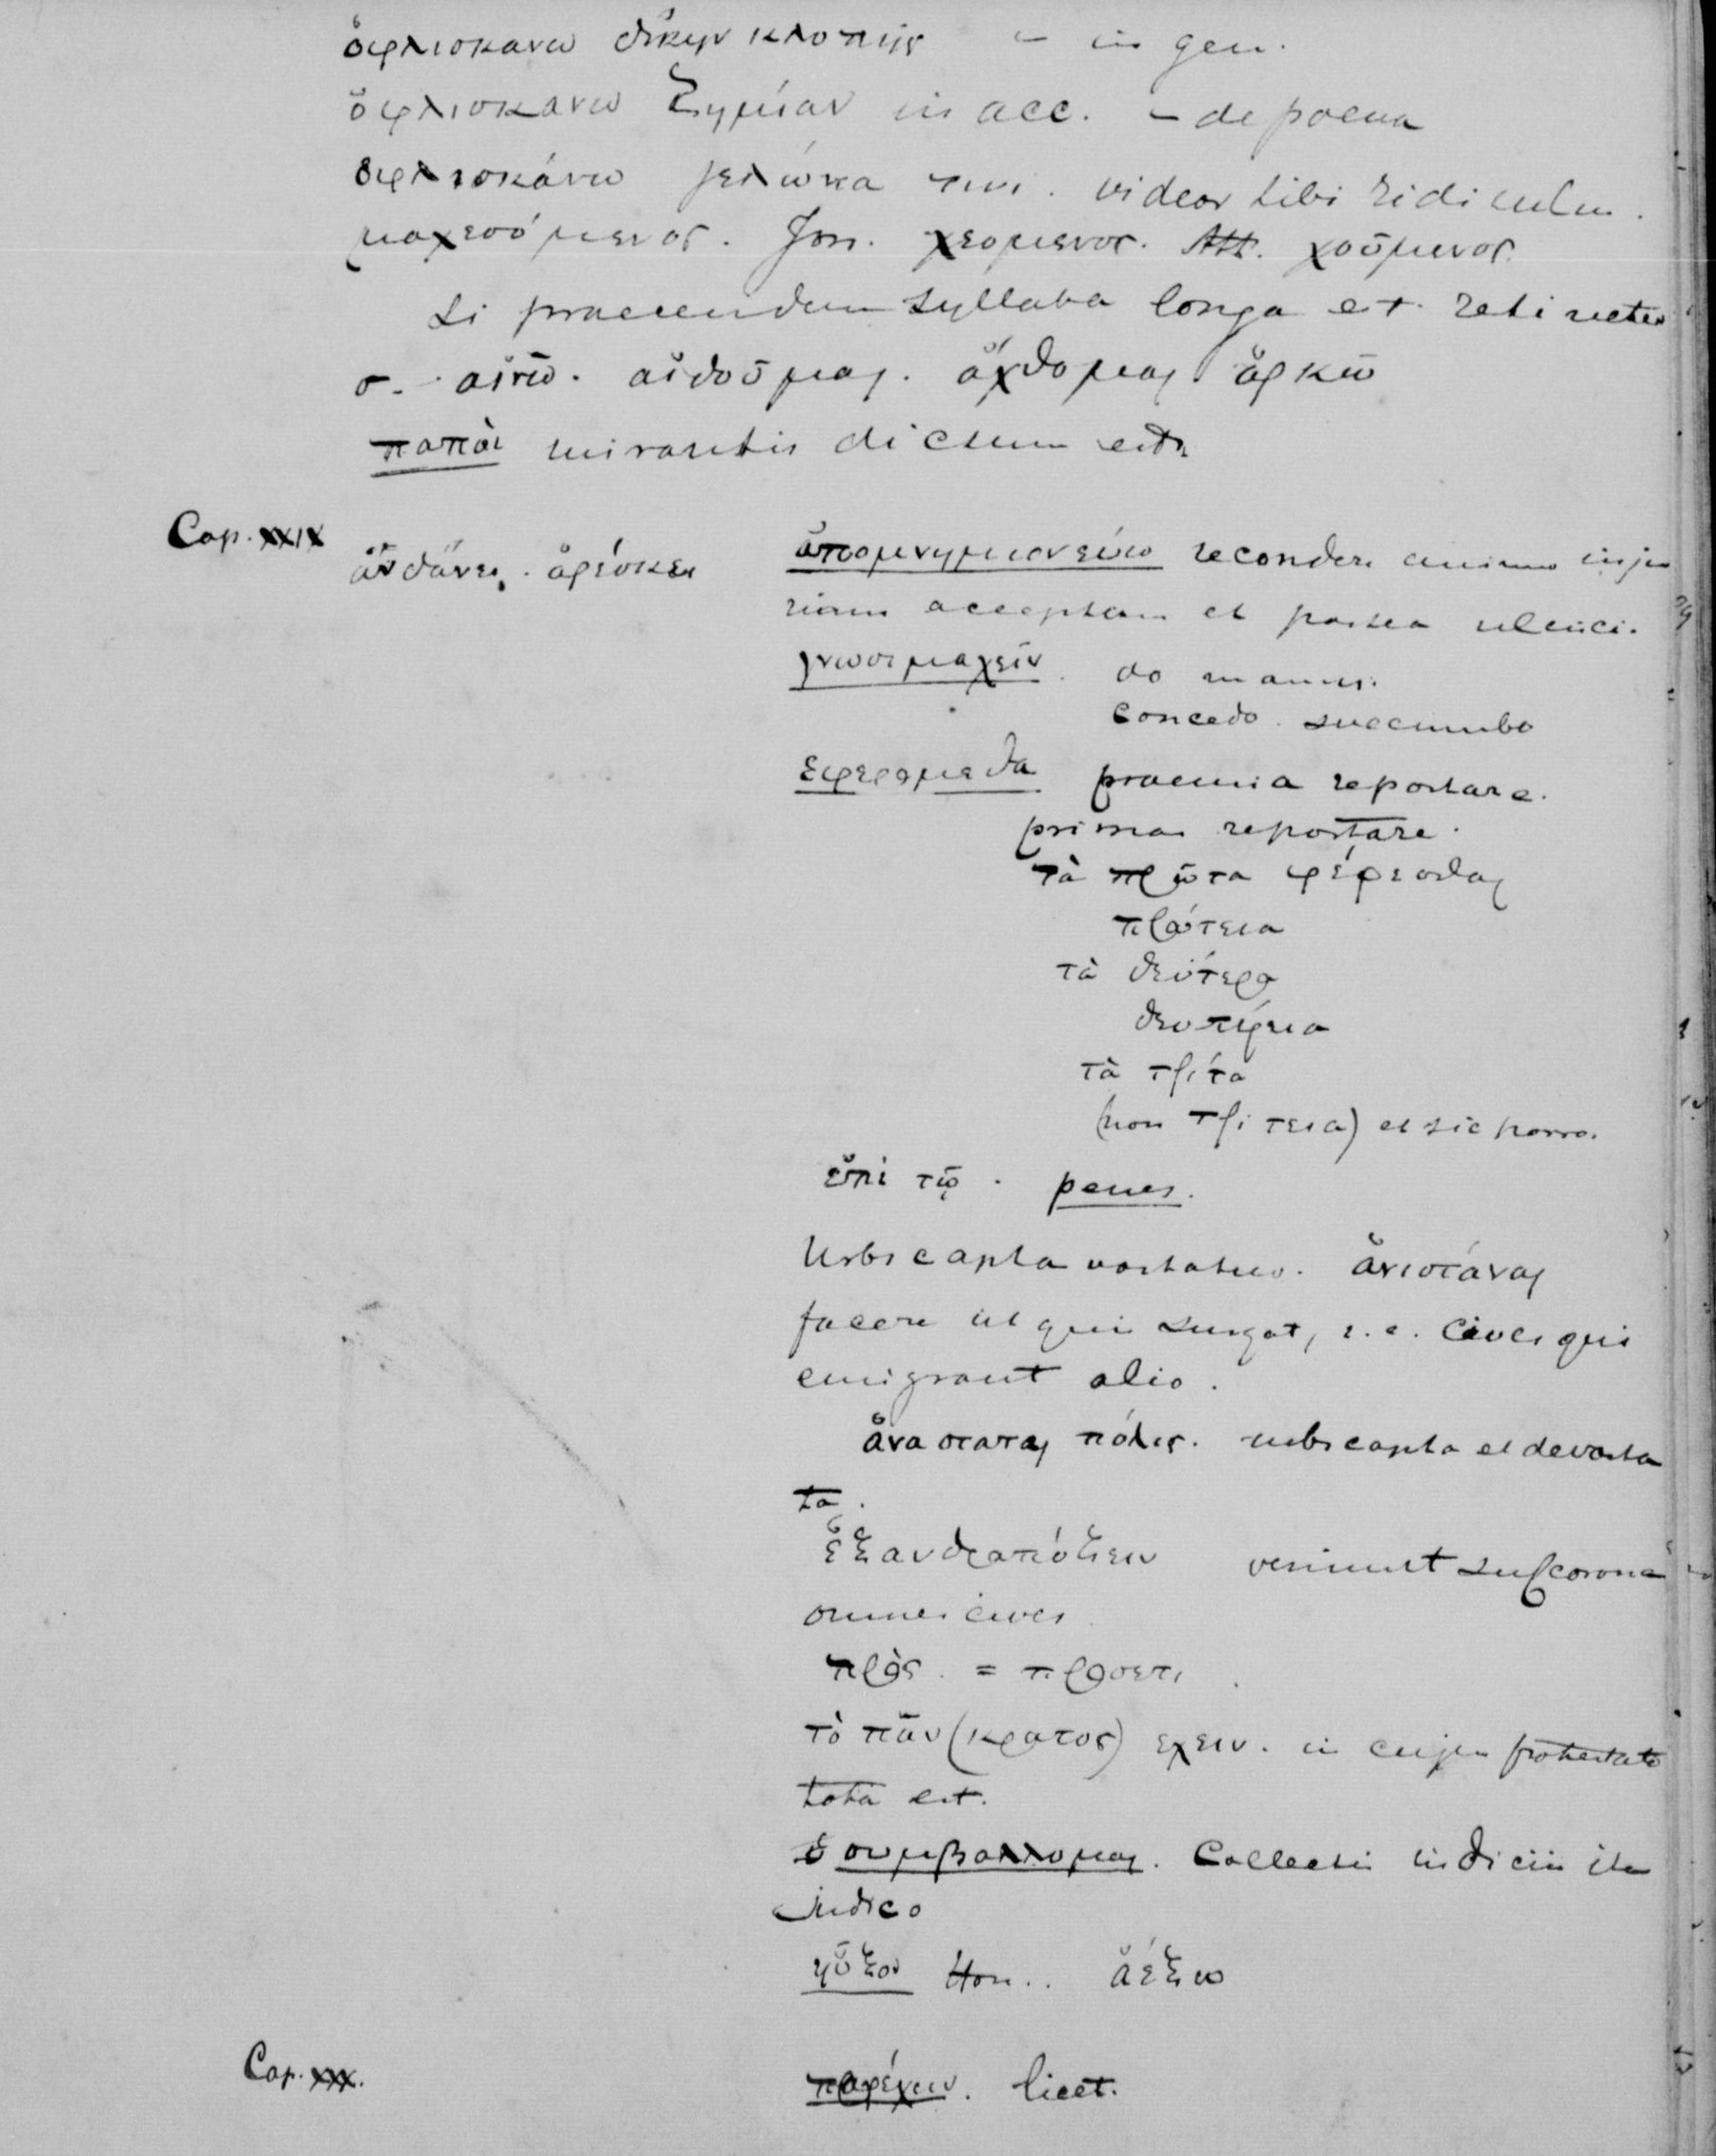 ὀφλισκανω δίκην κλοπῆς – in gen.
ὀφλισκανω ζημίαν in acc. – de poena
ὀφλισκάνω γέλωτα τινι. videor tibi ridiculus.
μαχεσόμενος. Ion. χεομενος. Att. χούμενος.
Si praecendem syllaba longa est retinetur
σ. αἰνῶ. αἰδοῦμαι. ἄχθομαι ἀρκῶ
παπαὶ mirantis dictum est
Cap. XXIX
ἁνδάνει. ἀρέσκει
ἀπομνημονεύω recondere animo inju
riam acceptam et postea ulcisci.
γνωσιμαχεῖν. do manus.
concedo. succumbo
ἐφερομεθα praemia reportare.
primas reportare.
τὰ πρῶτα φέρεσθαι
πρώτεια
τὰ δεύτερα
δευτέρεια
τὰ τρίτα
(non τρίτεια) et sic porro.
ἐπὶ τῷ. penes.
Urbs capta vastatur. ἀνιστάναι
facere ut quis surgat, i.e. cives qui
emigrant alio.
ἀναστατος πόλις. urbs capta et devasta
ta.
ἐξανδραπόδιζειν veniunt sub corona
omnes cives
πρὸς. = προσετι
τὸ πᾶν (κρατος) εχειν. in cujus potestate
tota est.
συμβαλλομαι. Collectis indiciis ita
judico
ηὖξον Hom.. ἀέξω
Cap. XXX.
παρέχειν. licet.